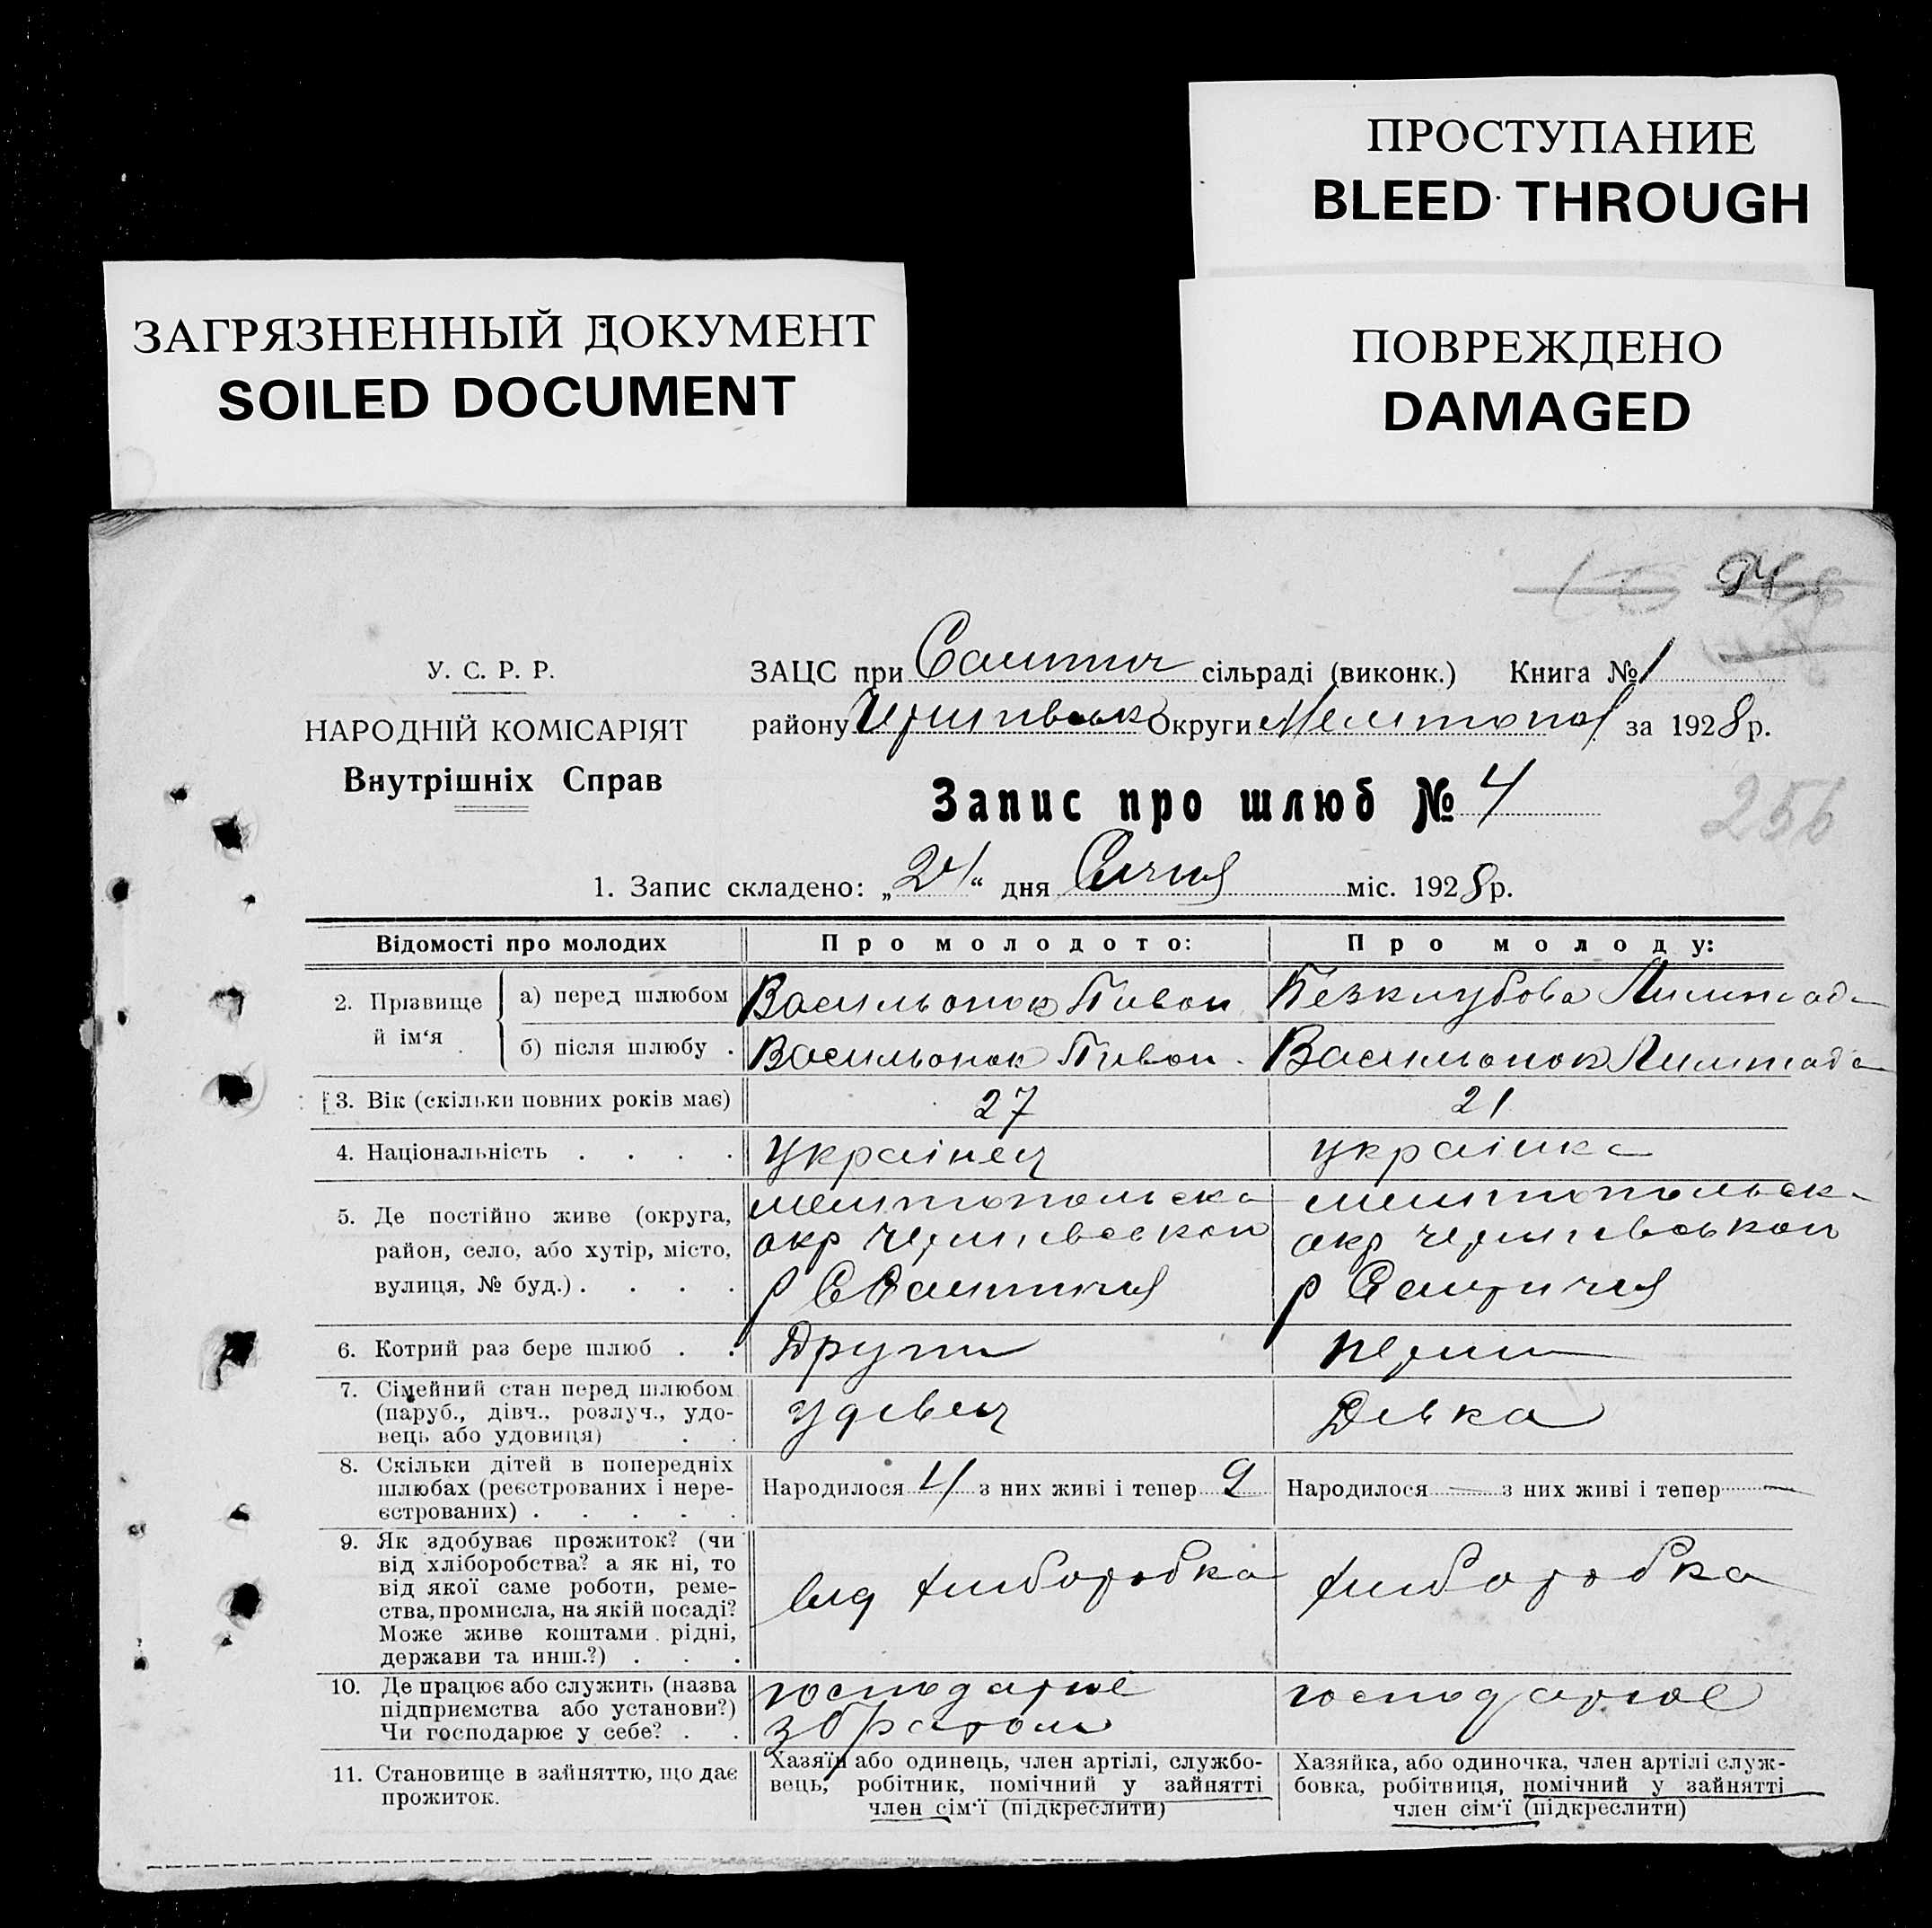 ПРОСТУПАНИЕ
BLEED THROUGH
ЗАГРЯЗНЕННЫЙ ДОКУМЕНТ
SOILED DOCUMENT
ПОВРЕЖДЕНО
DAMAGED
94
У. С. Р. Р.
НАРОДНІЙ КОМІСАРІЯТ
Внутрішніх Справ
ЗАЦС при сільраді (виконк.) Книга № 1
району Округи Мелитопол за 1928 р.
Запис про шлюб № 4
256
1. Запис складено: „24“ дня Січня міс. 1928 р.
Відомості про молодих
Про молодого:
Про молоду:
2. Прізвище й ім‘я
а) перед шлюбом
Васильонок Пивон
Безклубова
б) після шлюбу .
Васильонок Пивон
Васильонок
3. Вік (скільки повних років має)
27
21
4. Національність . . . .
українец
українка
5. Де постійно живе (округа,
район, село, або хутір, місто,
вулиця, № буд.) . . . .
мелитопольска
окр
р
мелитопольск
окр
р
6. Котрий раз бере шлюб . .
Други
перши
7. Сімейний стан перед шлюбом
(паруб., дівч., розлуч., удо-
вець або удовиця) . .
удівец
Дівка
8. Скільки дітей в попередніх
шлюбах (реєстрованих і нере-
єстрованих) . . . . .
Народилося 4 з них живі і тепер 2
Народилося — з них живі і тепер —
9. Як здобуває прожиток? (чи
від хліборобства? а як ні, то
від якої саме роботи, реме-
ства, промисла, на якій посаді?
Може живе коштами рідні,
держави та инш.?) . . .
від хлиборобка
хлиборобка
10. Де працює або служить (назва
підприємства або установи?)
Чи господарює у себе? . .
господарює
з братом
господарює
11. Становище в зайняттю, що дає
прожиток.
Хазяїн або одинець, член артілі, службо-
вець, робітник, помічний у зайнятті
член сім‘ї (підкреслити)
Хазяйка, або одиночка, член артілі служ-
бовка, робітниця, помічний у зайнятті
член сім‘ї (підкреслити)